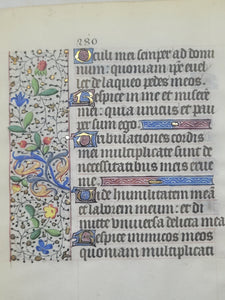 280
Oculi mei semper ad domi
num: quoniam ipse euel
let de laqueo pedes meos.
Respice in me et misere
mei: quia unicus et pau
per sum ego.
Tribulationes cordis
mei multiplicate sunt de
necessitatibus meis erue
Vide humilitatem meā
et laborem meum: et di
mitte vniuersa delicta mea
Respice inimicos meos
quoniam multiplicati